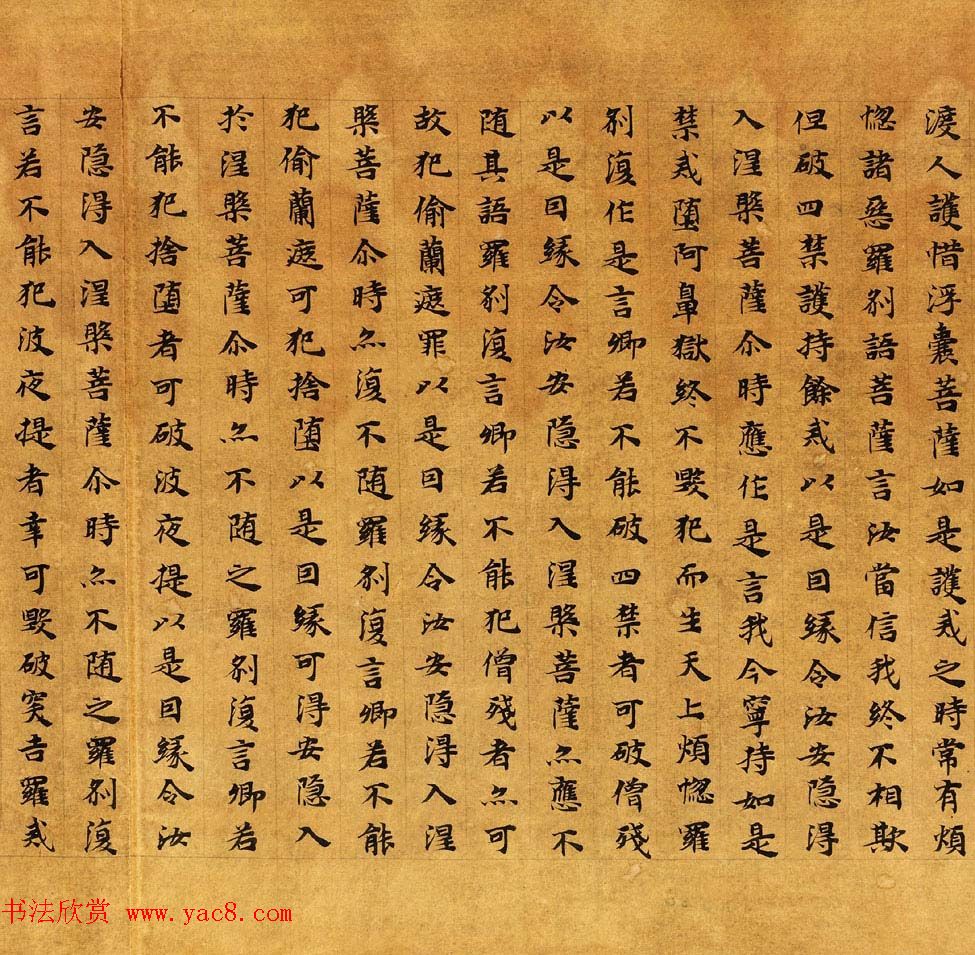 渡人護惜浮囊菩薩如是護戒之時常有煩
惚諸惡羅刹語菩薩言汝當信我終不相欺
但破四禁護持餘戒以是因緣令汝安隱得
入涅槃菩薩尒時應作是言我今寧持如是
禁戒墮阿鼻獄終不毀犯而生天上煩惚羅
刹復作是言卿若不能破四禁者可破僧殘
以是因緣令汝安隱得入涅槃菩薩亦應不
随其語羅刹復言卿若不能犯僧殘者亦可
故犯偷蘭遮罪以是因緣令汝安隱得入涅
槃菩薩尒時亦復不随羅刹復言卿若不能
犯偷蘭遮可犯捨墮以是因緣可得安隱入
於涅槃菩薩尒時亦不随之羅刹復言卿若
不能犯捨墮者可破波夜提以是因緣令汝
安隱得入涅槃菩薩尒時亦不随之羅刹復
言若不能犯波夜提者幸可毀破突吉羅戒
书法欣赏 www.yac8.com